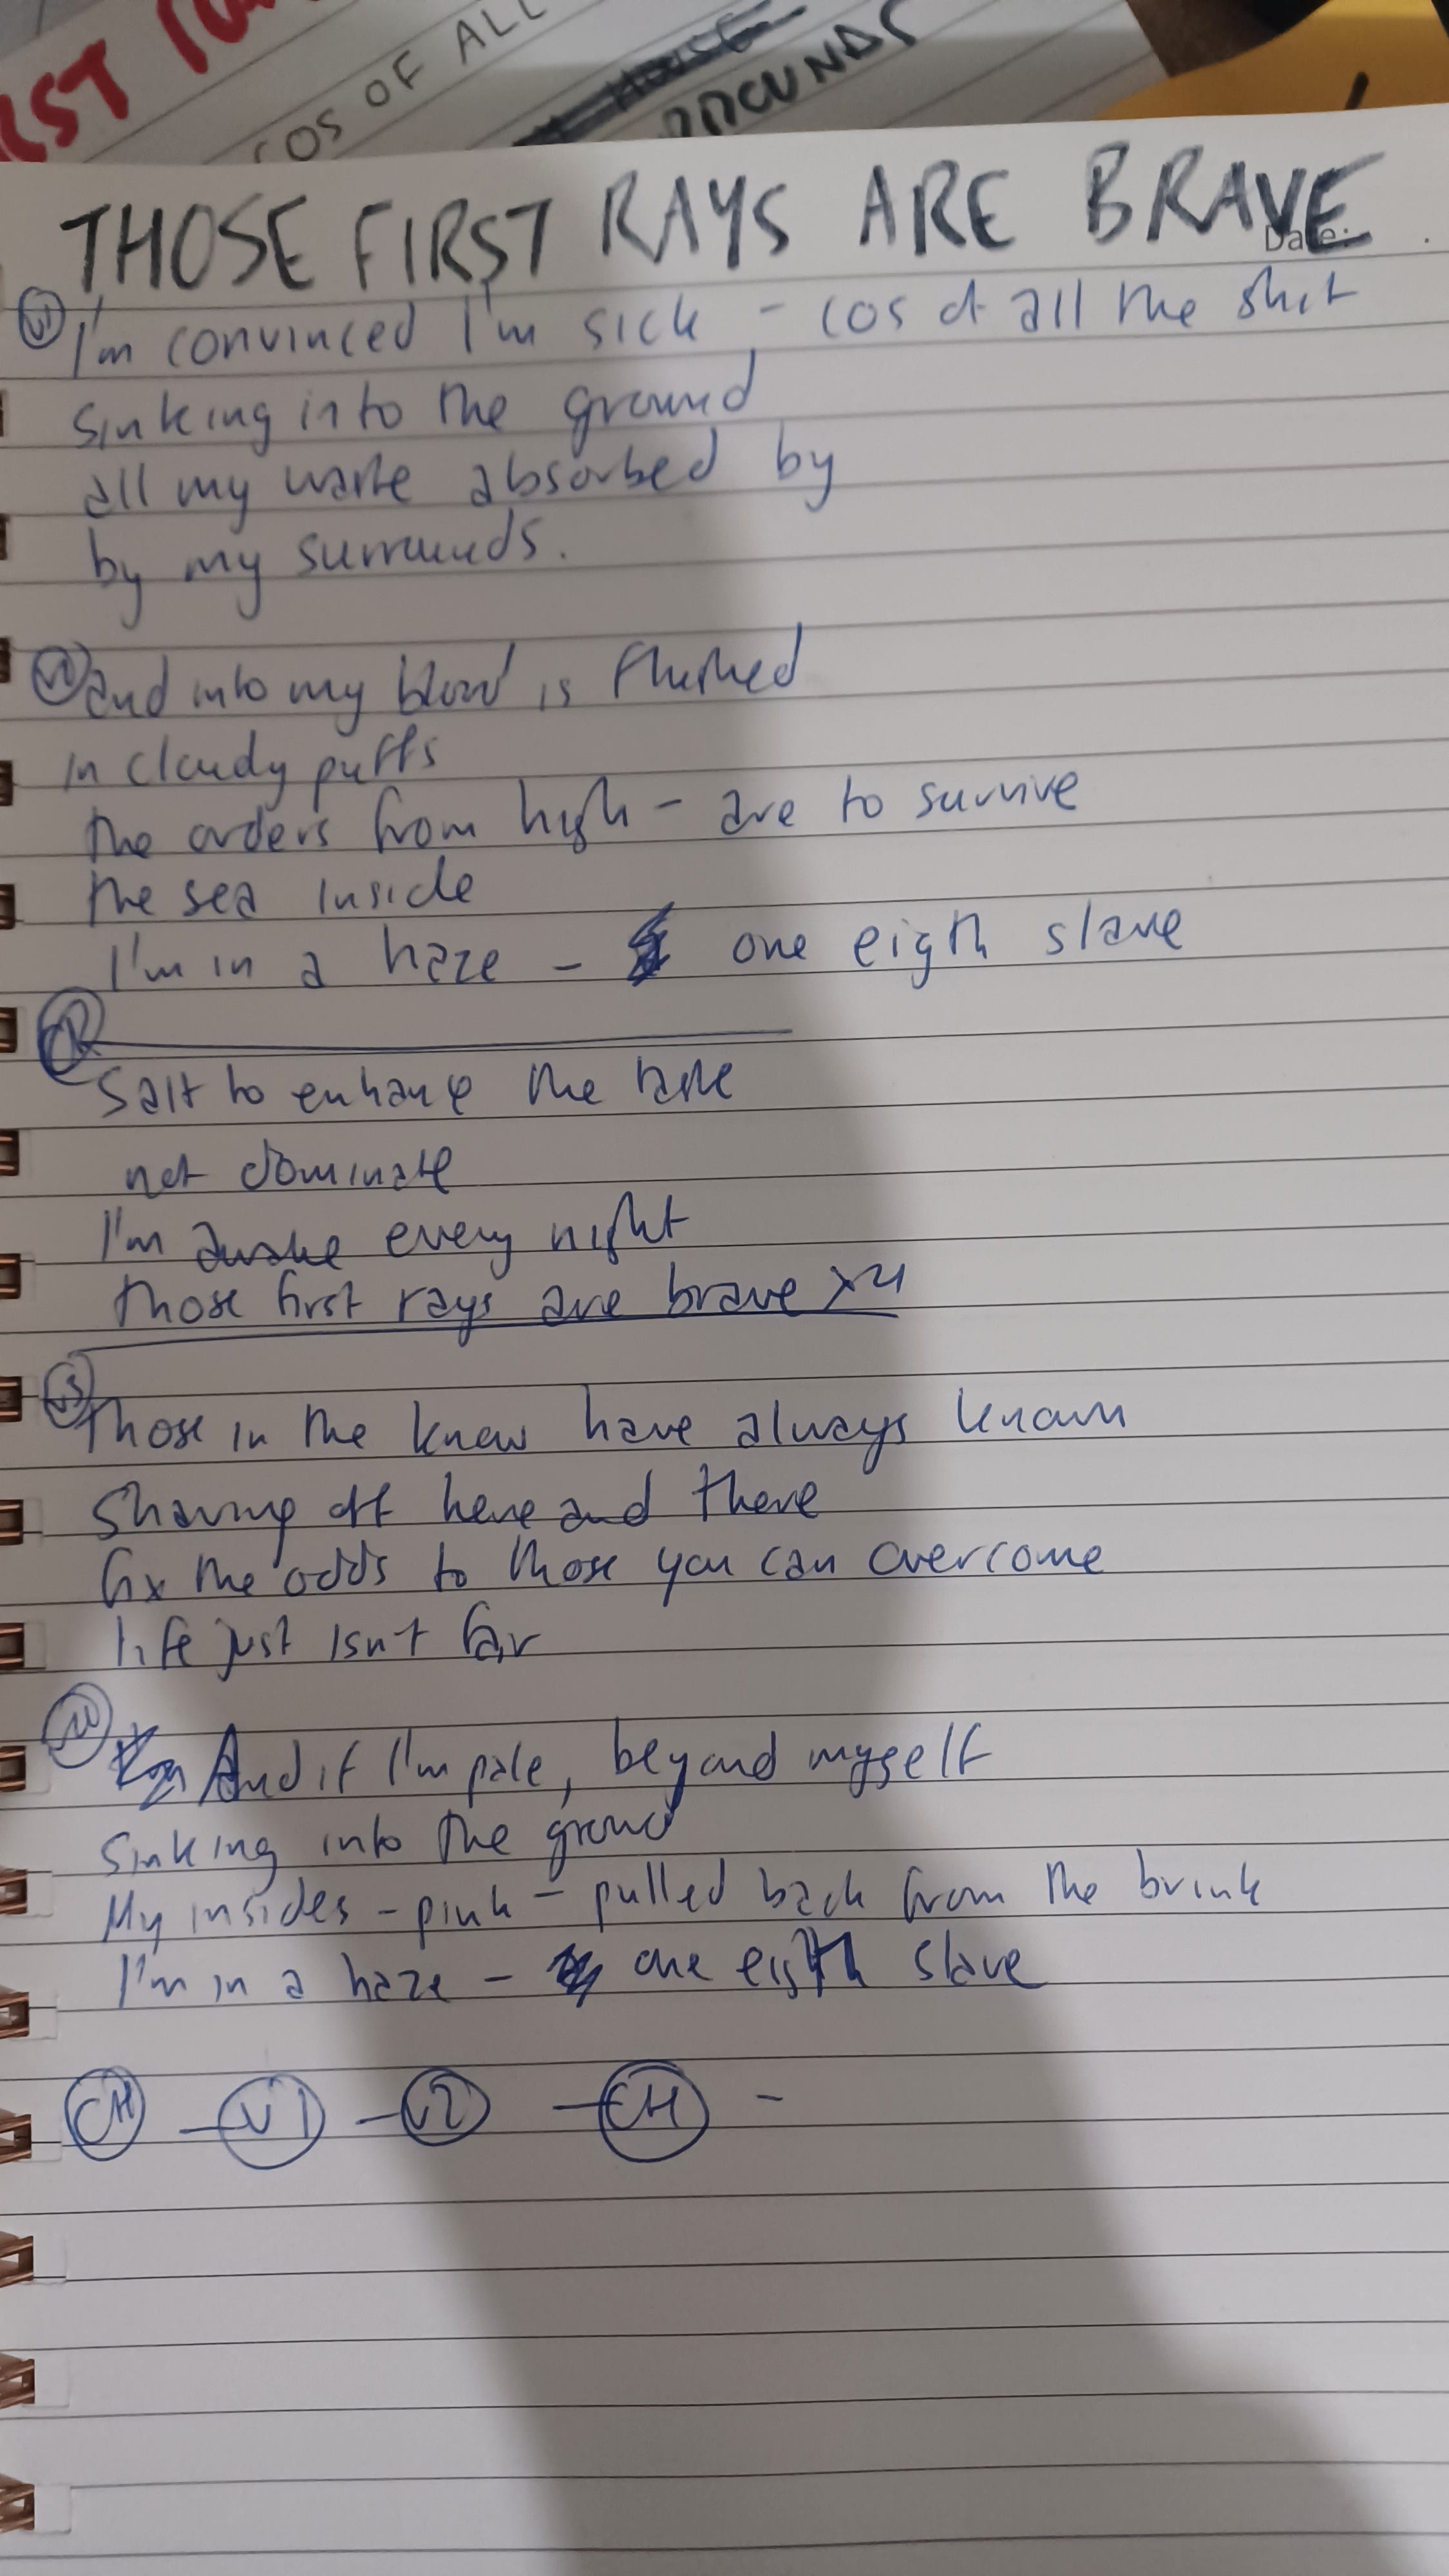 COS OF ALL
THOSE FIRST RAYS ARE BRAVE
Date:
V1 I'm convinced I'm sick - cos of all the shit
sinking into the ground
all my waste absorbed by
by my surrounds.
V2 and into my blood is flushed
in cloudy puffs
the orders from high - are to survive
the sea inside
I'm in a haze - one eigth slave
CH
Salt to enhance the taste
not dominate
I'm awake every night
those first rays are brave x4
V3
Those in the know have always known
Shaving off here and there
fix the odds to those you can overcome
life just isn't fair
V4
And if I'm pale, beyond myself
Sinking into the ground
My insides - pink - pulled back from the brink
I'm in a haze - one eigth slave
CH - V1 - V2 - CH -